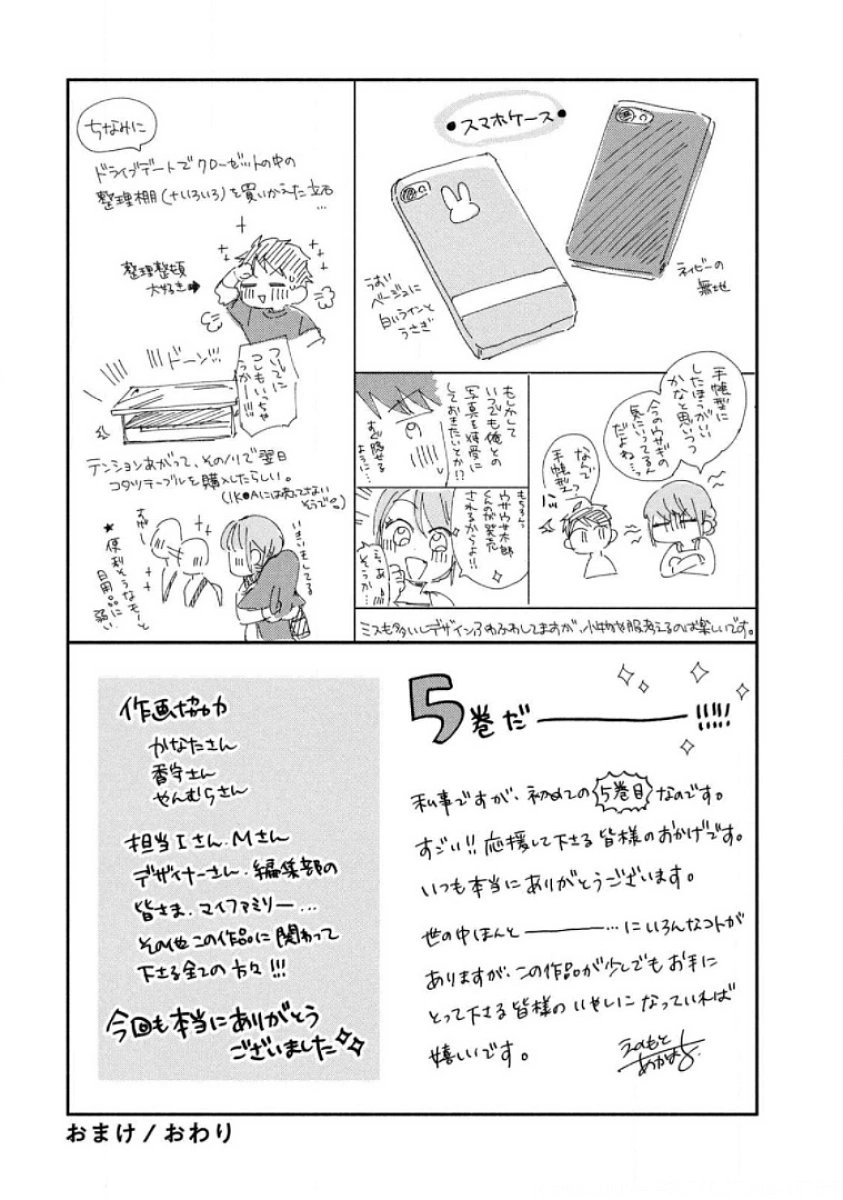 •スマホケース•
ネイビーの
無地
うすい
ベージュに
白いラインと
うさぎ
手帳型に
したほうがいい
かなと思いつつ
今のウサギの
気にいってるん
だよね…っ
なんで
手帳型っ
もしかして
いつでも俺との
写真を待受に
しておきたいとか!?
すぐ隠せる
ように…
もちろんっ
ウサウサ木郎
くんのが発売
されるからよ!!
あ
そうか…
ミスも多いしデザインふわふわしてますが、小物や服考えるのは楽しいです。
ちなみに
ドライブデートでクローゼットの中の
整理棚(+いろいろ)を買いかえた立石
…
整理整頓
大好き
ドーン!!!
ついでに
コレもいっちゃ
うっかー
テンションあがって、そのノリで翌日
コタツテーブルを購入したらしい。
(IK●Aには売ってさない
そうで。)
いきいきしてる
★便利そうなモノと
日用品に
弱い
5巻だ――――!!!!!
私事ですが、初めての5巻目なのです。
すごい!!応援して下さる皆様のおかげです。
いつも本当にありがとうございます。
世の中ほんと――――…にいろんなコトが
ありますが、この作品が少しでもお手に
とって下さる皆様のいやしになっていれば
嬉しいです。
えのもと
あかまる
作画協力
かなたさん
香守さん
やんむらさん
担当Iさん.Mさん
デザイナーさん.編集部の
皆さま.マイファミリー…
その他この作品に関わって
下さる全ての方々!!!
今回も本当にありがとう
ございました
おまけ/おわり